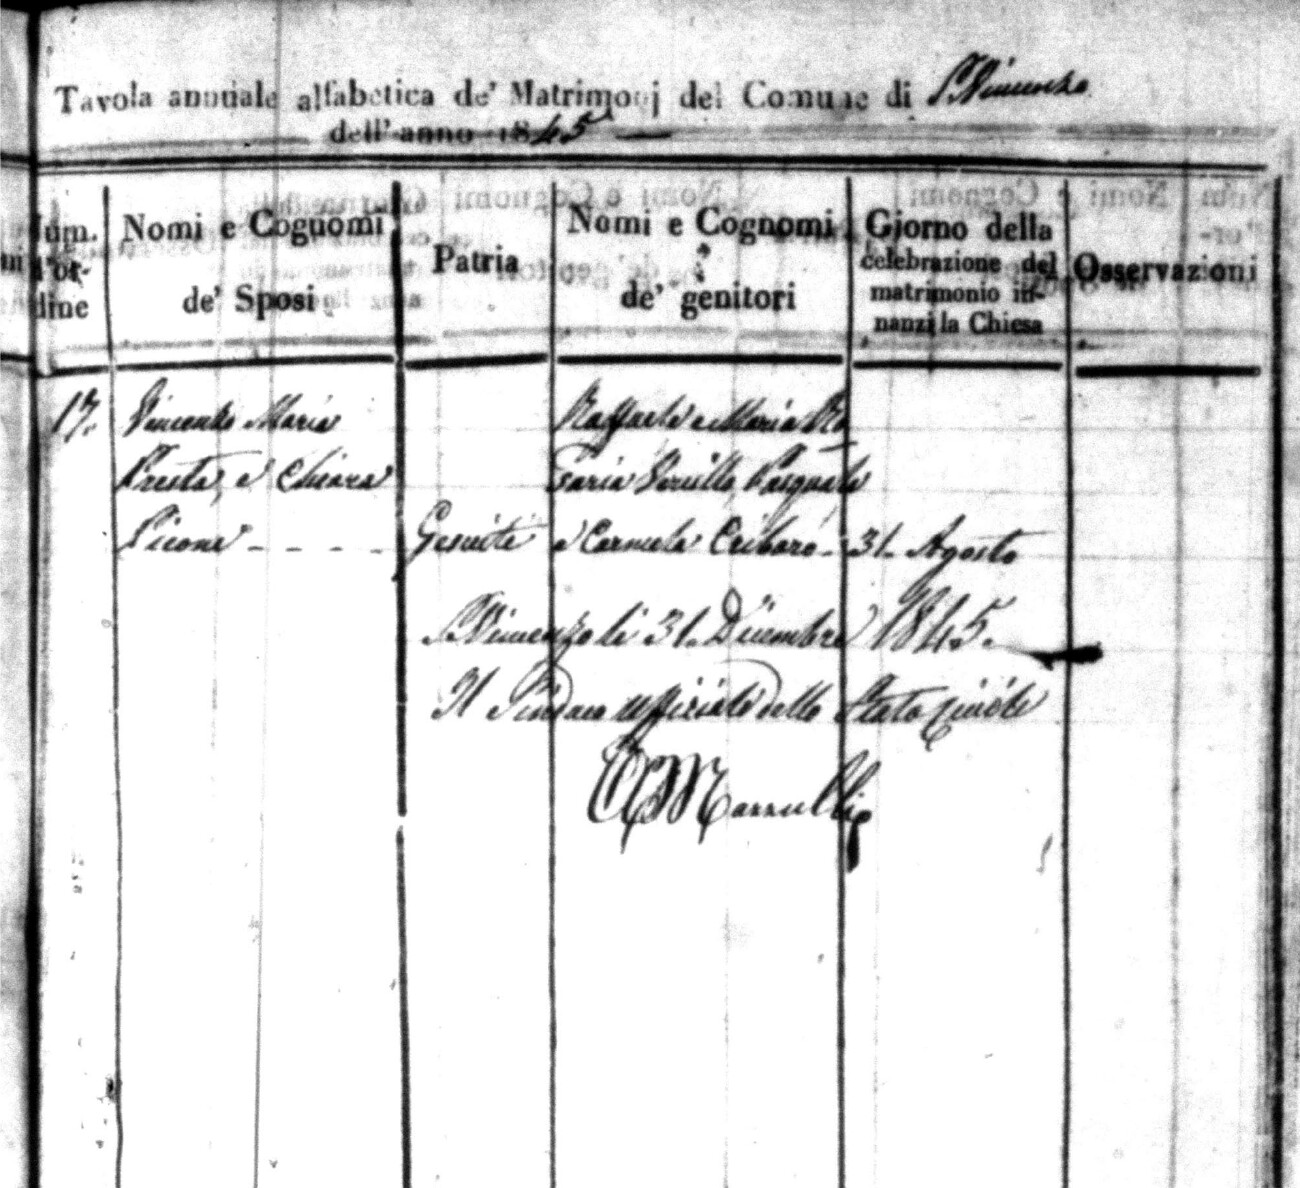 Tavola annuale alfabetica de' Matrimonj del Comune di S. Vincenzo
dell'anno 1845
Num. d'or-dine
Nomi e Cognomi de' Sposi
Patria
Nomi e Cognomi de' genitori
Giorno della celebrazione del matrimonio in-nanzi la Chiesa
Osservazioni
17. Vincenzo Maria Raffaele e Maria Ro
Presta, e Chiara saria Vercillo, Pasquale
Picone - - - - Gesuite e Carmela Cribaro - 31 - Agosto
S. Vincenzo li 31. Dicembre 1845.
Il Sindaco uffiziale dello Stato civile